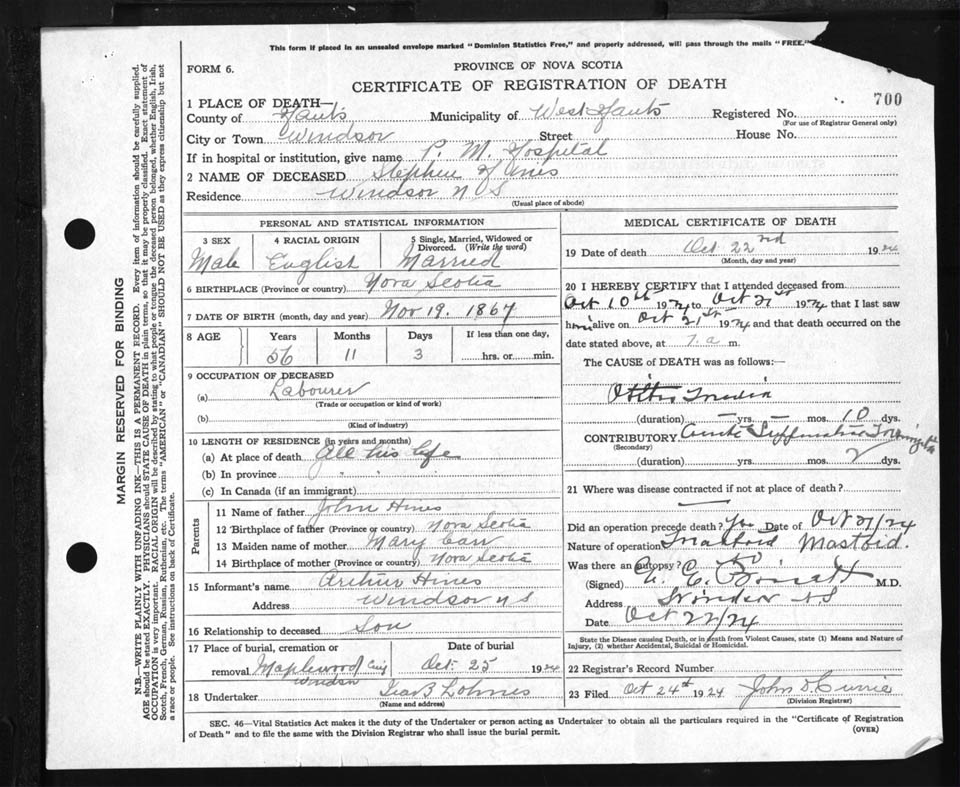 This form if placed in an unsealed envelope marked "Dominion Statistics Free," and properly addressed, will pass through the mails "FREE."
FORM 6.
PROVINCE OF NOVA SCOTIA
CERTIFICATE OF REGISTRATION OF DEATH
700
1 PLACE OF DEATH—
County of Hants Municipality of West Hants Registered No.
(For use of Registrar General only)
City or Town Windsor Street House No.
If in hospital or institution, give name P. M. Hospital
2 NAME OF DECEASED Stephen Hines
Residence Windsor N S
(Usual place of abode)
PERSONAL AND STATISTICAL INFORMATION
3 SEX 4 RACIAL ORIGIN 5 Single, Married, Widowed or Divorced. (Write the word)
Male English Married
6 BIRTHPLACE (Province or country) Nova Scotia
7 DATE OF BIRTH (month, day and year) Nov 19. 1867
8 AGE Years Months Days If less than one day,
56 11 3 hrs. or min.
9 OCCUPATION OF DECEASED
(a) Labourer
(Trade or occupation or kind of work)
(b)
(Kind of industry)
10 LENGTH OF RESIDENCE (in years and months)
(a) At place of death All his life
(b) In province " " "
(c) In Canada (if an immigrant)
Parents
11 Name of father John Hines
12 Birthplace of father (Province or country) Nova Scotia
13 Maiden name of mother Mary Carr
14 Birthplace of mother (Province or country) Nova Scotia
15 Informant's name Arthur Hines
Address Windsor N S
16 Relationship to deceased Son
17 Place of burial, cremation or Date of burial
removal Maplewood Cmy Oct. 25 1924
Windsor
18 Undertaker
(Name and address)
MEDICAL CERTIFICATE OF DEATH
19 Date of death Oct 22nd 1924
(Month, day and year)
20 I HEREBY CERTIFY that I attended deceased from
Oct 10th 1924 to Oct 21st 1924 that I last saw
him alive on Oct 21st 1924 and that death occurred on
date stated above, at 7. a m.
The CAUSE of DEATH was as follows:—
Otitis Media
(duration) — yrs. — mos. 10 dys.
CONTRIBUTORY Acute Suppurative Meningitis
(Secondary)
(duration) yrs. mos. 2 dys.
21 Where was disease contracted if not at place of death? —
Did an operation precede death? Yes Date of Oct 21/24
Nature of operation Mastoid Mastoid.
Was there an autopsy? no
(Signed) M.D.
Address Windsor NS
Date Oct 22/24
State the Disease causing Death, or in death from Violent Causes, state (1) Means and Nature of
Injury, (2) whether Accidental, Suicidal or Homicidal.
22 Registrar's Record Number
23 Filed Oct 24th 1924 John D. Currie
(Division Registrar)
SEC. 46—Vital Statistics Act makes it the duty of the Undertaker or person acting as Undertaker to obtain all the particulars required in the "Certificate of Registration
of Death" and to file the same with the Division Registrar who shall issue the burial permit.
(OVER)
MARGIN RESERVED FOR BINDING
N.B.—WRITE PLAINLY WITH UNFADING INK—THIS IS A PERMANENT RECORD. Every item of information should be carefully supplied.
AGE should be stated EXACTLY. PHYSICIANS should STATE CAUSE OF DEATH in plain terms, so that it may be properly classified. Exact statement of
OCCUPATION is very important. RACIAL ORIGIN will be described by stating to what people or tongue the deceased person belonged, whether English, Irish,
Scotch, French, German, Russian, Ruthenian, etc. The terms "AMERICAN" or "CANADIAN" SHOULD NOT BE USED as they express citizenship but not
a race or people. See instructions on back of Certificate.